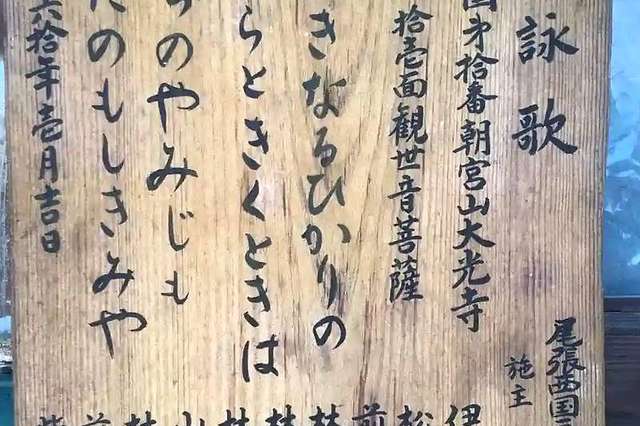 詠歌
国第拾番朝宮山大光寺
拾壱面観世音菩薩
きなるひかりの
らときくときは
のやみじも
のもしきみや
六拾年壱月吉日
尾張西国三
施主
伊
松
前
林
林
林
山
林
前